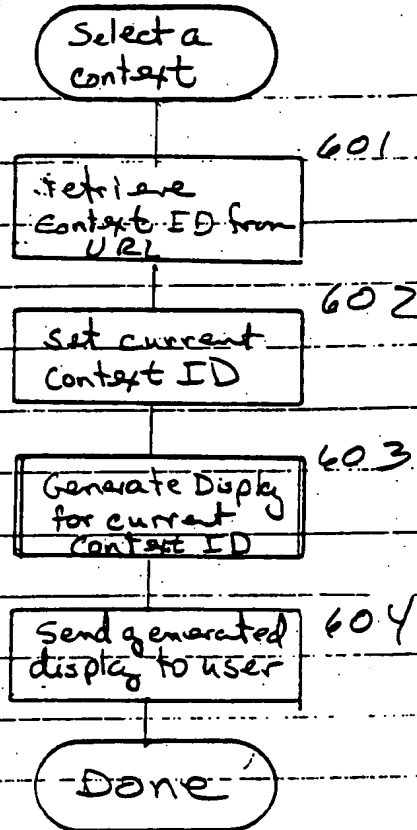 Select a
context
601
retrieve
context ID from
URL
602
set current
Context ID
603
Generate Display
for current
context ID
604
Send generated
display to user
Done